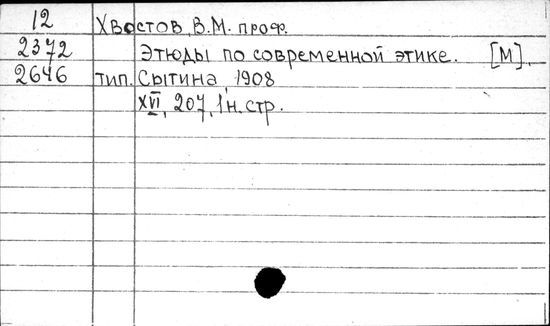 12 Хвостов, В.М. проф.
2372 Этюды по современной этике. [М].
2646 тип. Сытина, 1908
XVI, 207, 1 н. стр.